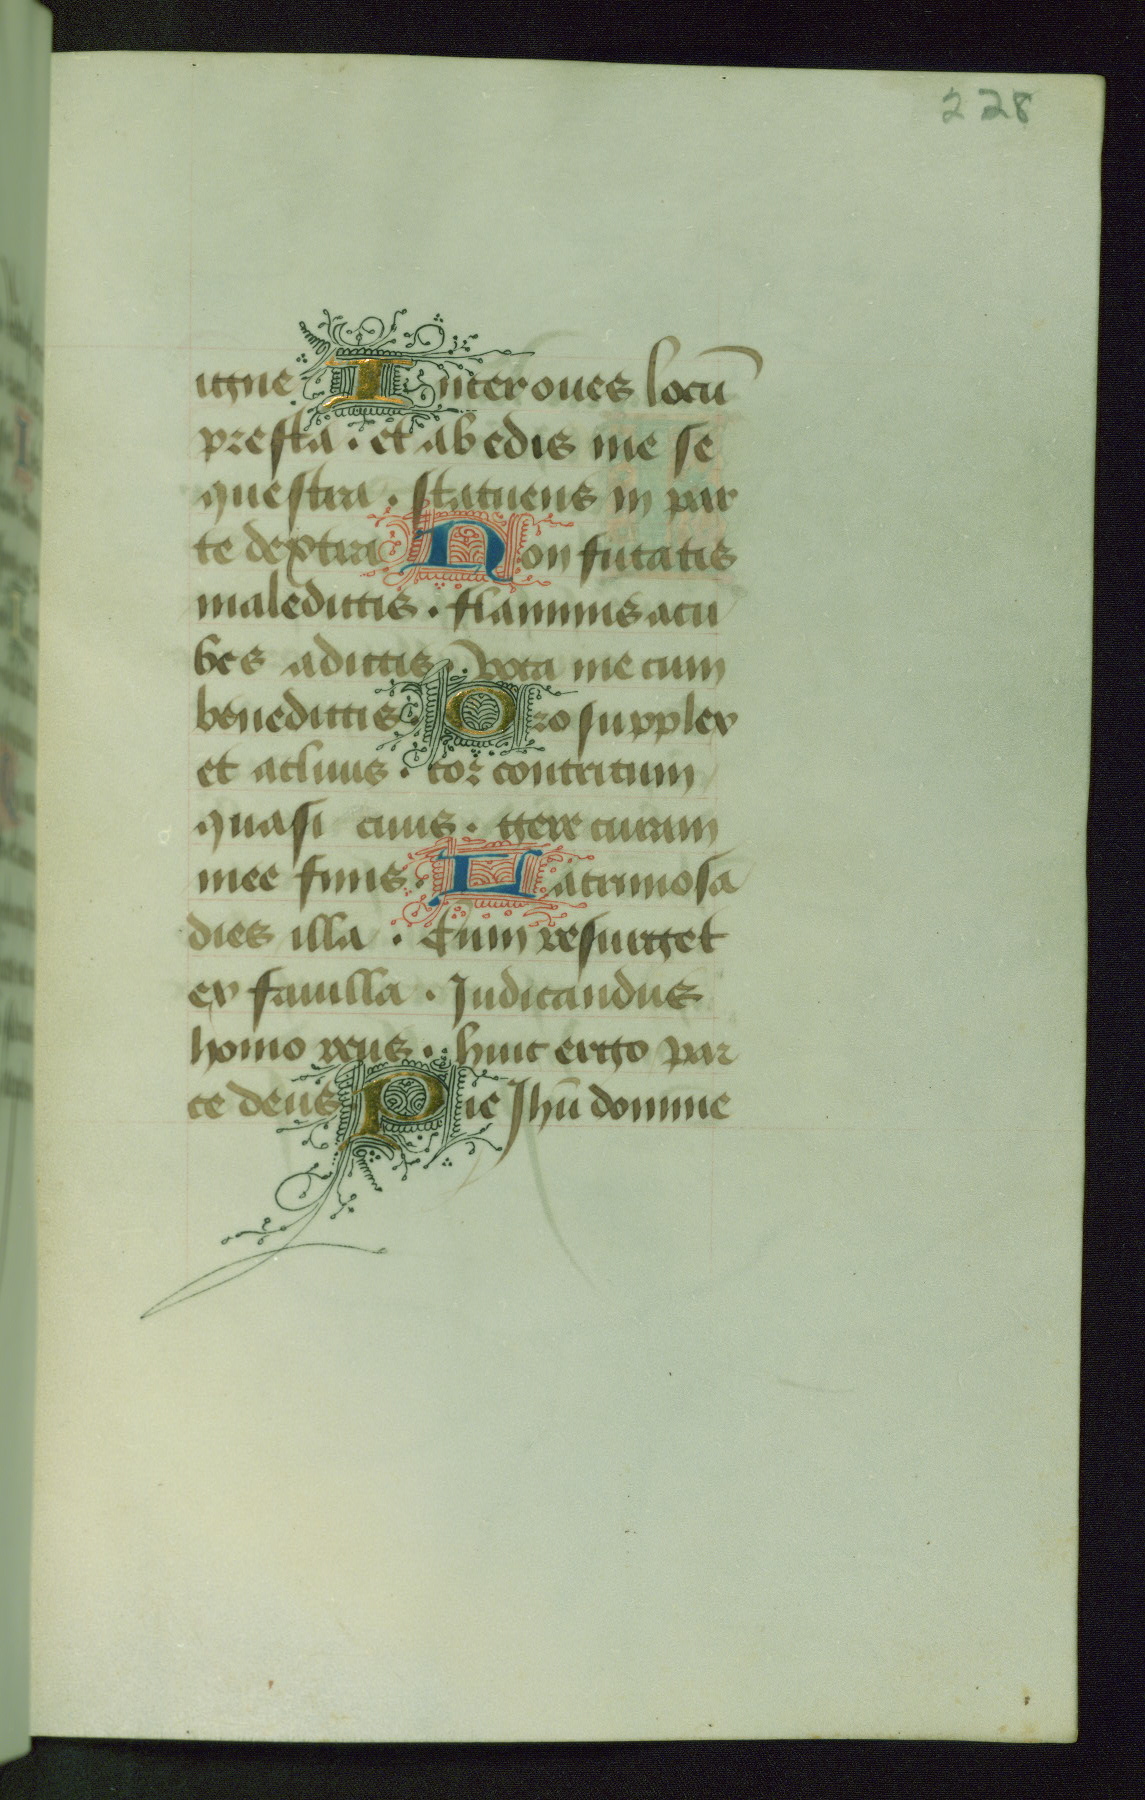 228
igne Inter oues locū
presta · et ab edis me se
questra · statuens in par
te dextra Non futatis
maledictis · flammis acri
bes adictis · voca me cum
benedictis Oro supplex
et acliuis · cor contritum
quasi ciuis · gere curam
mee finis · Lacrimosa
dies illa · Cum resurget
ex fauilla · Judicandus
homo reus · huic ergo par
ce deus Pie Jhū domine